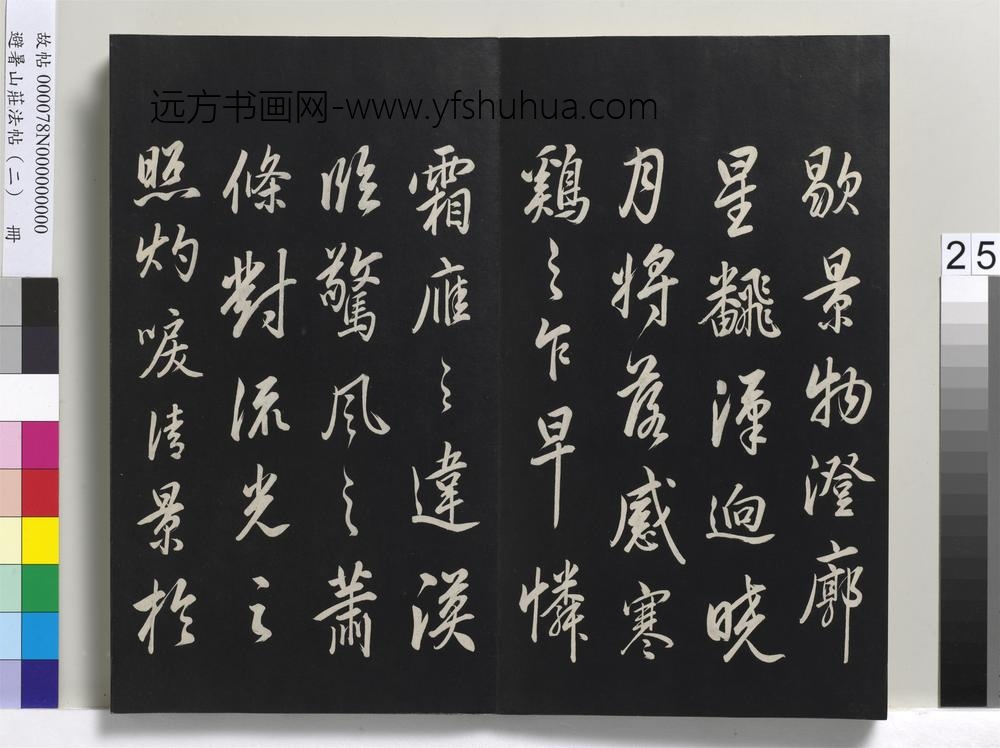 歇景物澄廓
星飜漢逈曉
月將落感寒
鷄之乍早憐
霜雁之違漠
臨驚風之蕭
條對流光之
照灼唳清景於
远方书画网-www.yfshuhua.com
故帖 000078N000000000
避暑山莊法帖(二) 冊
25